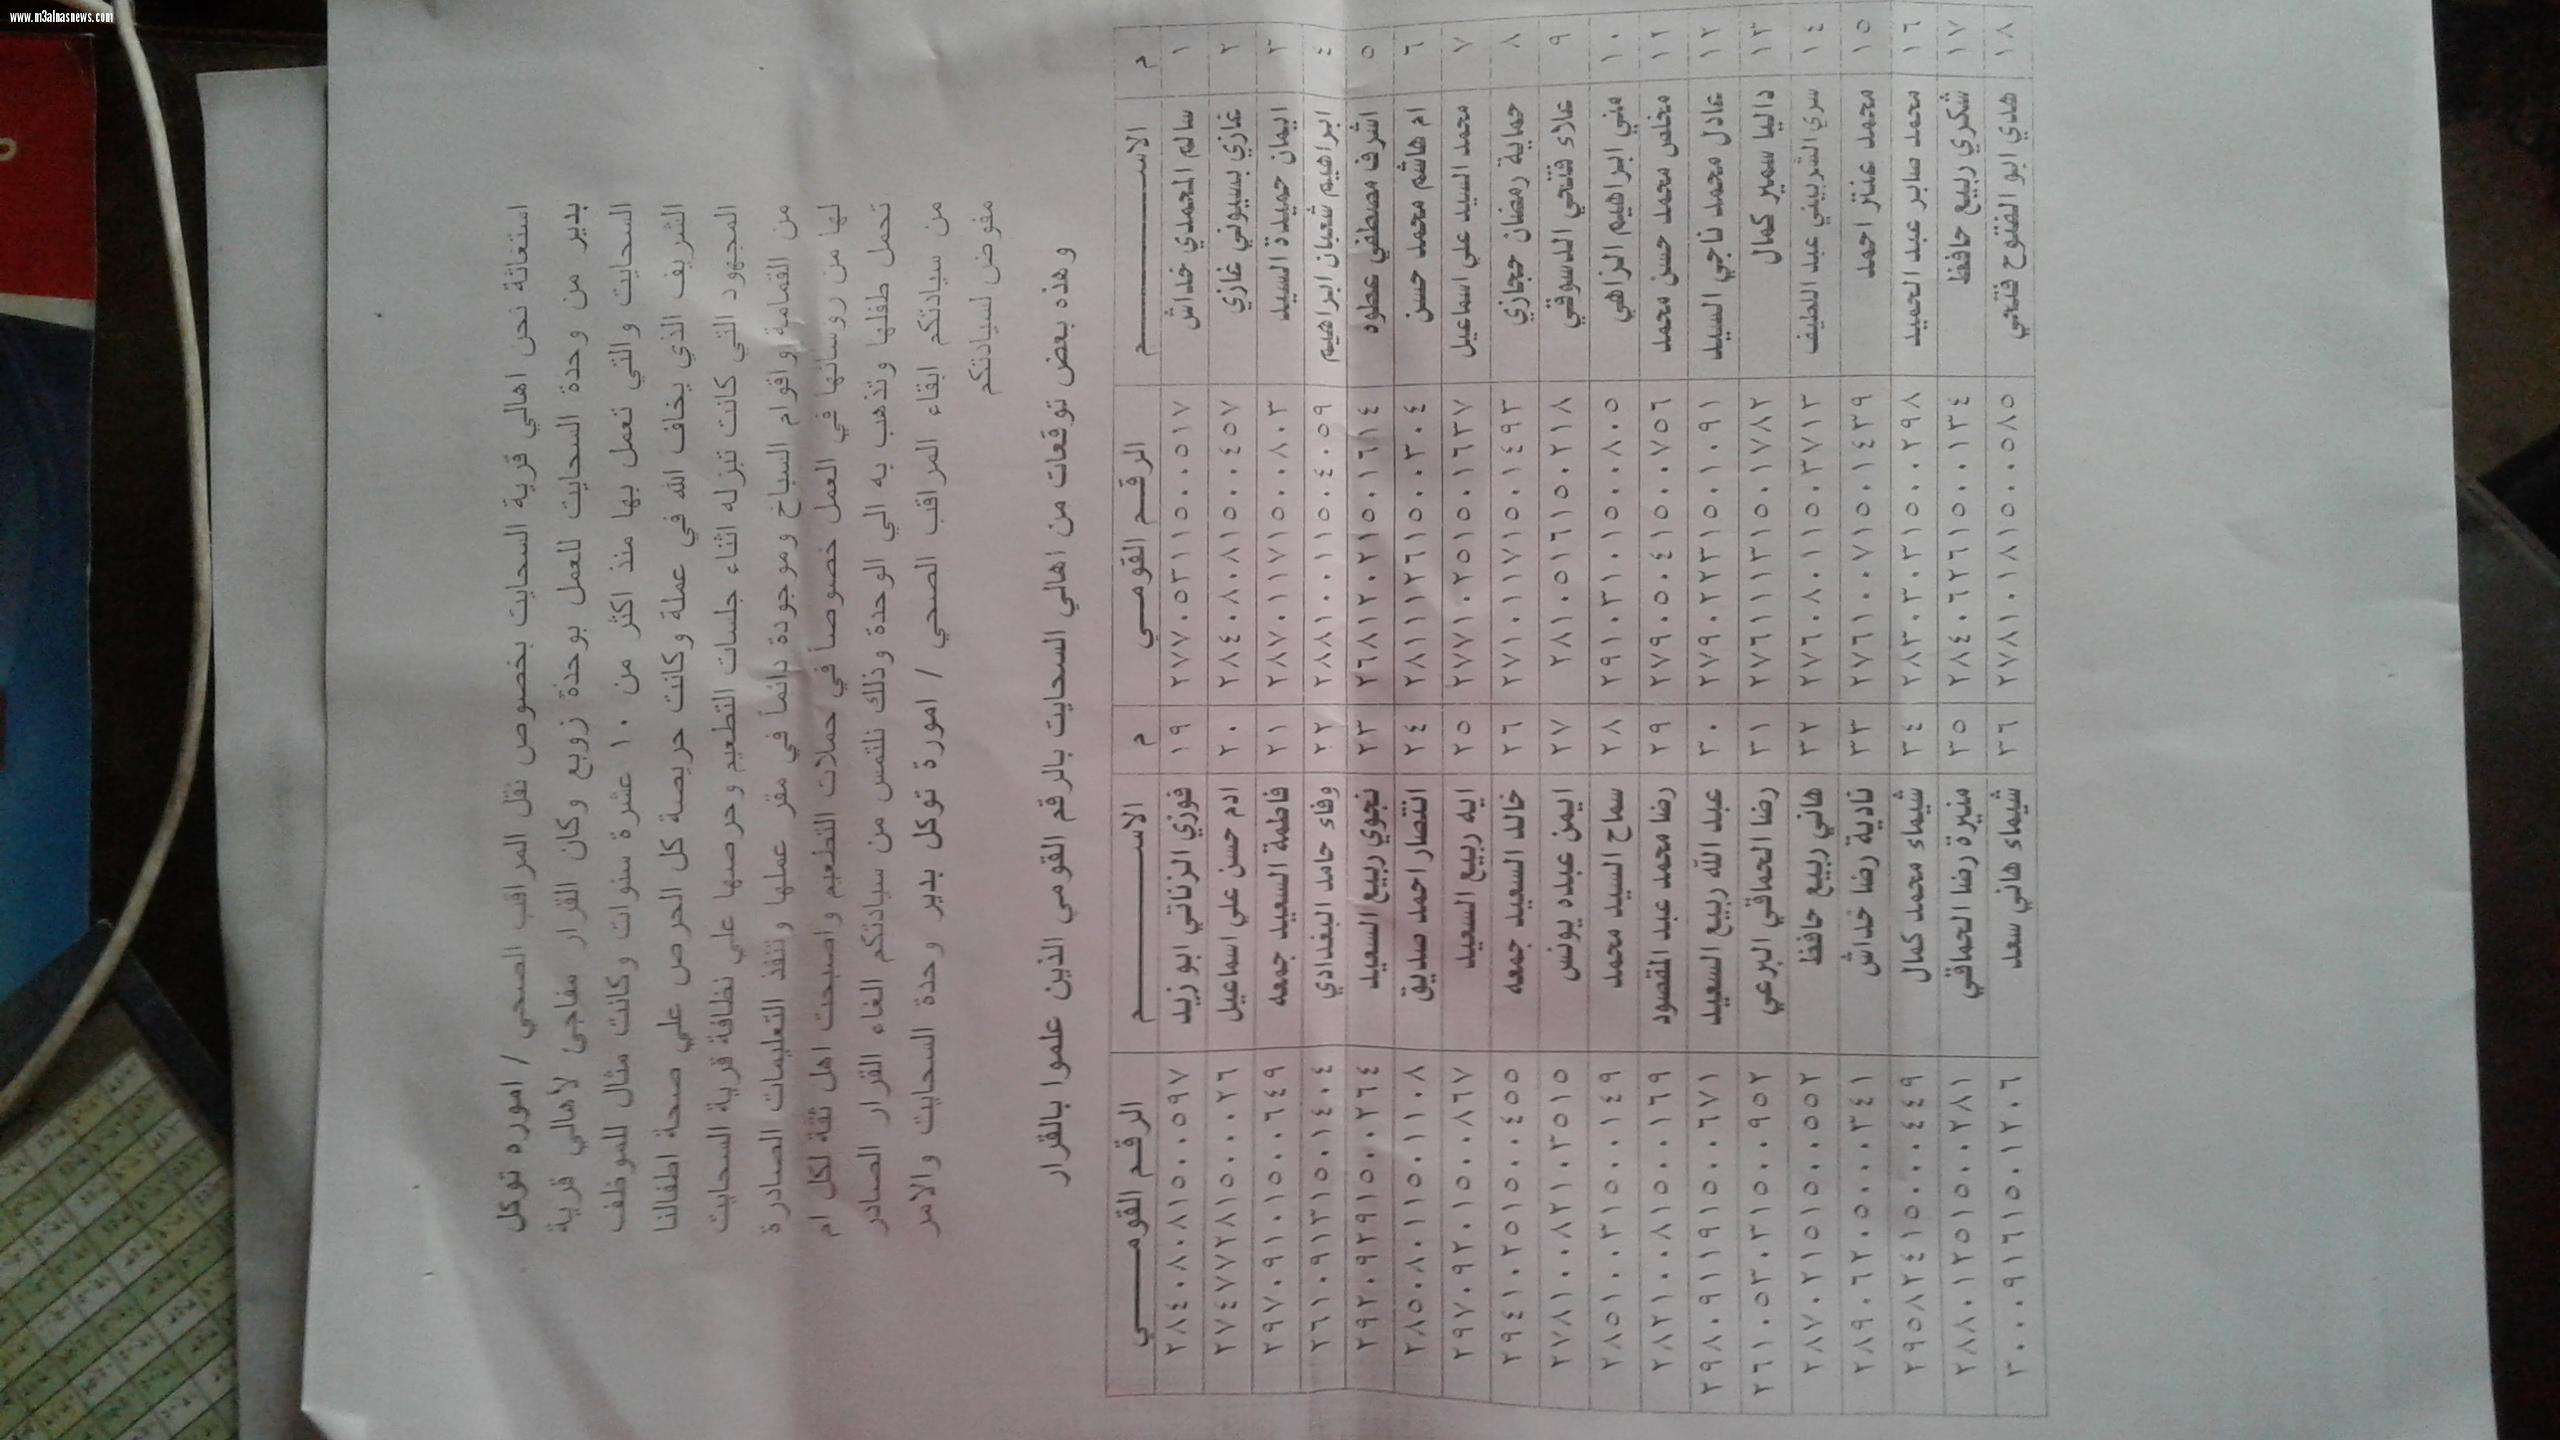 www.m3alnasnews.com
استغاثة نحن اهالي قرية السحايت بخصوص نقل المراقب الصحي / اموره توكل
بدير من وحدة السحايت للعمل بوحدة زوبع وكان القرار مفاجئ لأهالي قرية
السحايت والتي تعمل بها منذ اكثر من ١٠ عشرة سنوات وكانت مثال للموظف
الشريف الذي يخاف الله في عملة وكانت حريصة كل الحرص علي صحة اطفالنا
المجهود التي كانت تبزله اثناء جلسات التطعيم وحرصها علي نظافة قرية السحايت
من القمامة واقوام السباخ وموجودة دائماً في مقر عملها وتنفذ التعليمات الصادرة
لها من روسائها في العمل خصوصاً في حملات التطعيم واصبحت اهل ثقة لكل ام
تحمل طفلها وتذهب به الي الوحدة وذلك نلتمس من سيادتكم الغاء القرار الصادر
من سيادتكم ابقاء المراقب الصحي / امورة توكل بدير وحدة السحايت والامر
مفوض لسيادتكم
وهذه بعض توقعات من اهالي السحايت بالرقم القومي الذين علموا بالقرار
م الاســـــم الرقـم القومـــي م الاســـــم الرقـم القومـــي
١ سالم المحمدي خداش ٢٧٧٠٥٣١١٥٠٠٥١٧ ١٩ فوزي الزناتي ابو زيد ٢٨٤٠٨٠٨١٥٠٠٥٩٧
٢ غازي بسيوني غازي ٢٨٤٠٨٠٨١٥٠٠٤٥٧ ٢٠ ادم حسن علي اسماعيل ٢٧٤٧٧٢٨١٥٠٠٠٢٦
٣ ايمان حميدة السيد ٢٨٧٠١١٧١٥٠٠٨٠٣ ٢١ فاطمة السعيد جمعه ٢٩٧٠٩١٠١٥٠٠٦٤٩
٤ ابراهيم شعبان ابراهيم ٢٨٨١٠٠١١٥٠٤٠٥٩ ٢٢ وفاء حامد البغدادي ٢٦١٠٩١٣١٥٠١٤٠٤
٥ اشرف مصطفي عطوه ٢٦٨١٢٠٢١٥٠١٦١٤ ٢٣ نجوي ربيع السعيد ٢٩٢٠٩٢٩١٥٠٠٢٦٤
٦ ام هاشم محمد حسن ٢٨١١١٢٦١٥٠٠٣٠٤ ٢٤ انتصار احمد صديق ٢٨٥٠٨٠١١٥٠١١٠٨
٧ محمد السيد علي اسماعيل ٢٧٧١٠٢٥١٥٠١٦٣٧ ٢٥ ايه ربيع السعيد ٢٩٧٠٩٢٠١٥٠٠٨٦٧
٨ حماية رمضان حجازي ٢٧١٠١١٧١٥٠١٤٩٣ ٢٦ خالد السعيد جمعه ٢٩٤١٠٢٥١٥٠٠٤٥٥
٩ علاء فتحي الدسوقي ٢٨١٠٥١٦١٥٠٢١٨ ٢٧ ايمن عبده يونس ٢٧٨١٠٠٨٢١٠٣٥١٥
١٠ مني ابراهيم الزاهي ٢٩١٠٣١٠١٥٠٠٨٠٥ ٢٨ سماح السيد محمد ٢٨٥١٠٠٣١٥٠٠١٤٩
١١ مخلص محمد حسن محمد ٢٧٩٠٥٠٤١٥٠٠٧٥٦ ٢٩ رضا محمد عبد المقصود ٢٨٢١٠٠٨١٥٠٠١٦٩
١٢ عادل محمد ناجي السيد ٢٧٩٠٢٢٣١٥٠١٠٩١ ٣٠ عبد الله ربيع السعيد ٢٩٨٠٩١١٩١٥٠٠٦٧١
١٣ داليا سمير كمال ٢٧٦١١١٣١٥٠١٧٨٢ ٣١ رضا الحماقي البرعي ٢٦١٠٥٣٠٣١٥٠٠٩٥٢
١٤ سري الشربيني عبد اللطيف ٢٧٦٠٨٠١١٥٠٣٧١٣ ٣٢ هاني ربيع حافظ ٢٨٧٠٢١٥١٥٠٠٥٥٢
١٥ محمد عنتر احمد ٢٧٦١٠٠٧١٥٠١٤٣٩ ٣٣ نادية رضا خداش ٢٨٩٠٦٢٠٥٠٠٠٣٤١
١٦ محمد صابر عبد الحميد ٢٨٣٠٣٠٣١٥٠٠٢٩٨ ٣٤ شيماء محمد كمال ٢٩٥٨٢٤١٥٠٠٠٤٤٩
١٧ شكري ربيع حافظ ٢٨٤٠٦٢٦١٥٠٠١٣٤ ٣٥ منيرة رضا الحماقي ٢٨٨٠١٢٥١٥٠٠٢٨١
١٨ هدي ابو الفتوح فتحي ٢٧٨١٠١٨١٥٠٠٥٨٥ ٣٦ شيماء هاني سعد ٣٠٠٠٩١٦١٥٠١٢٠٦